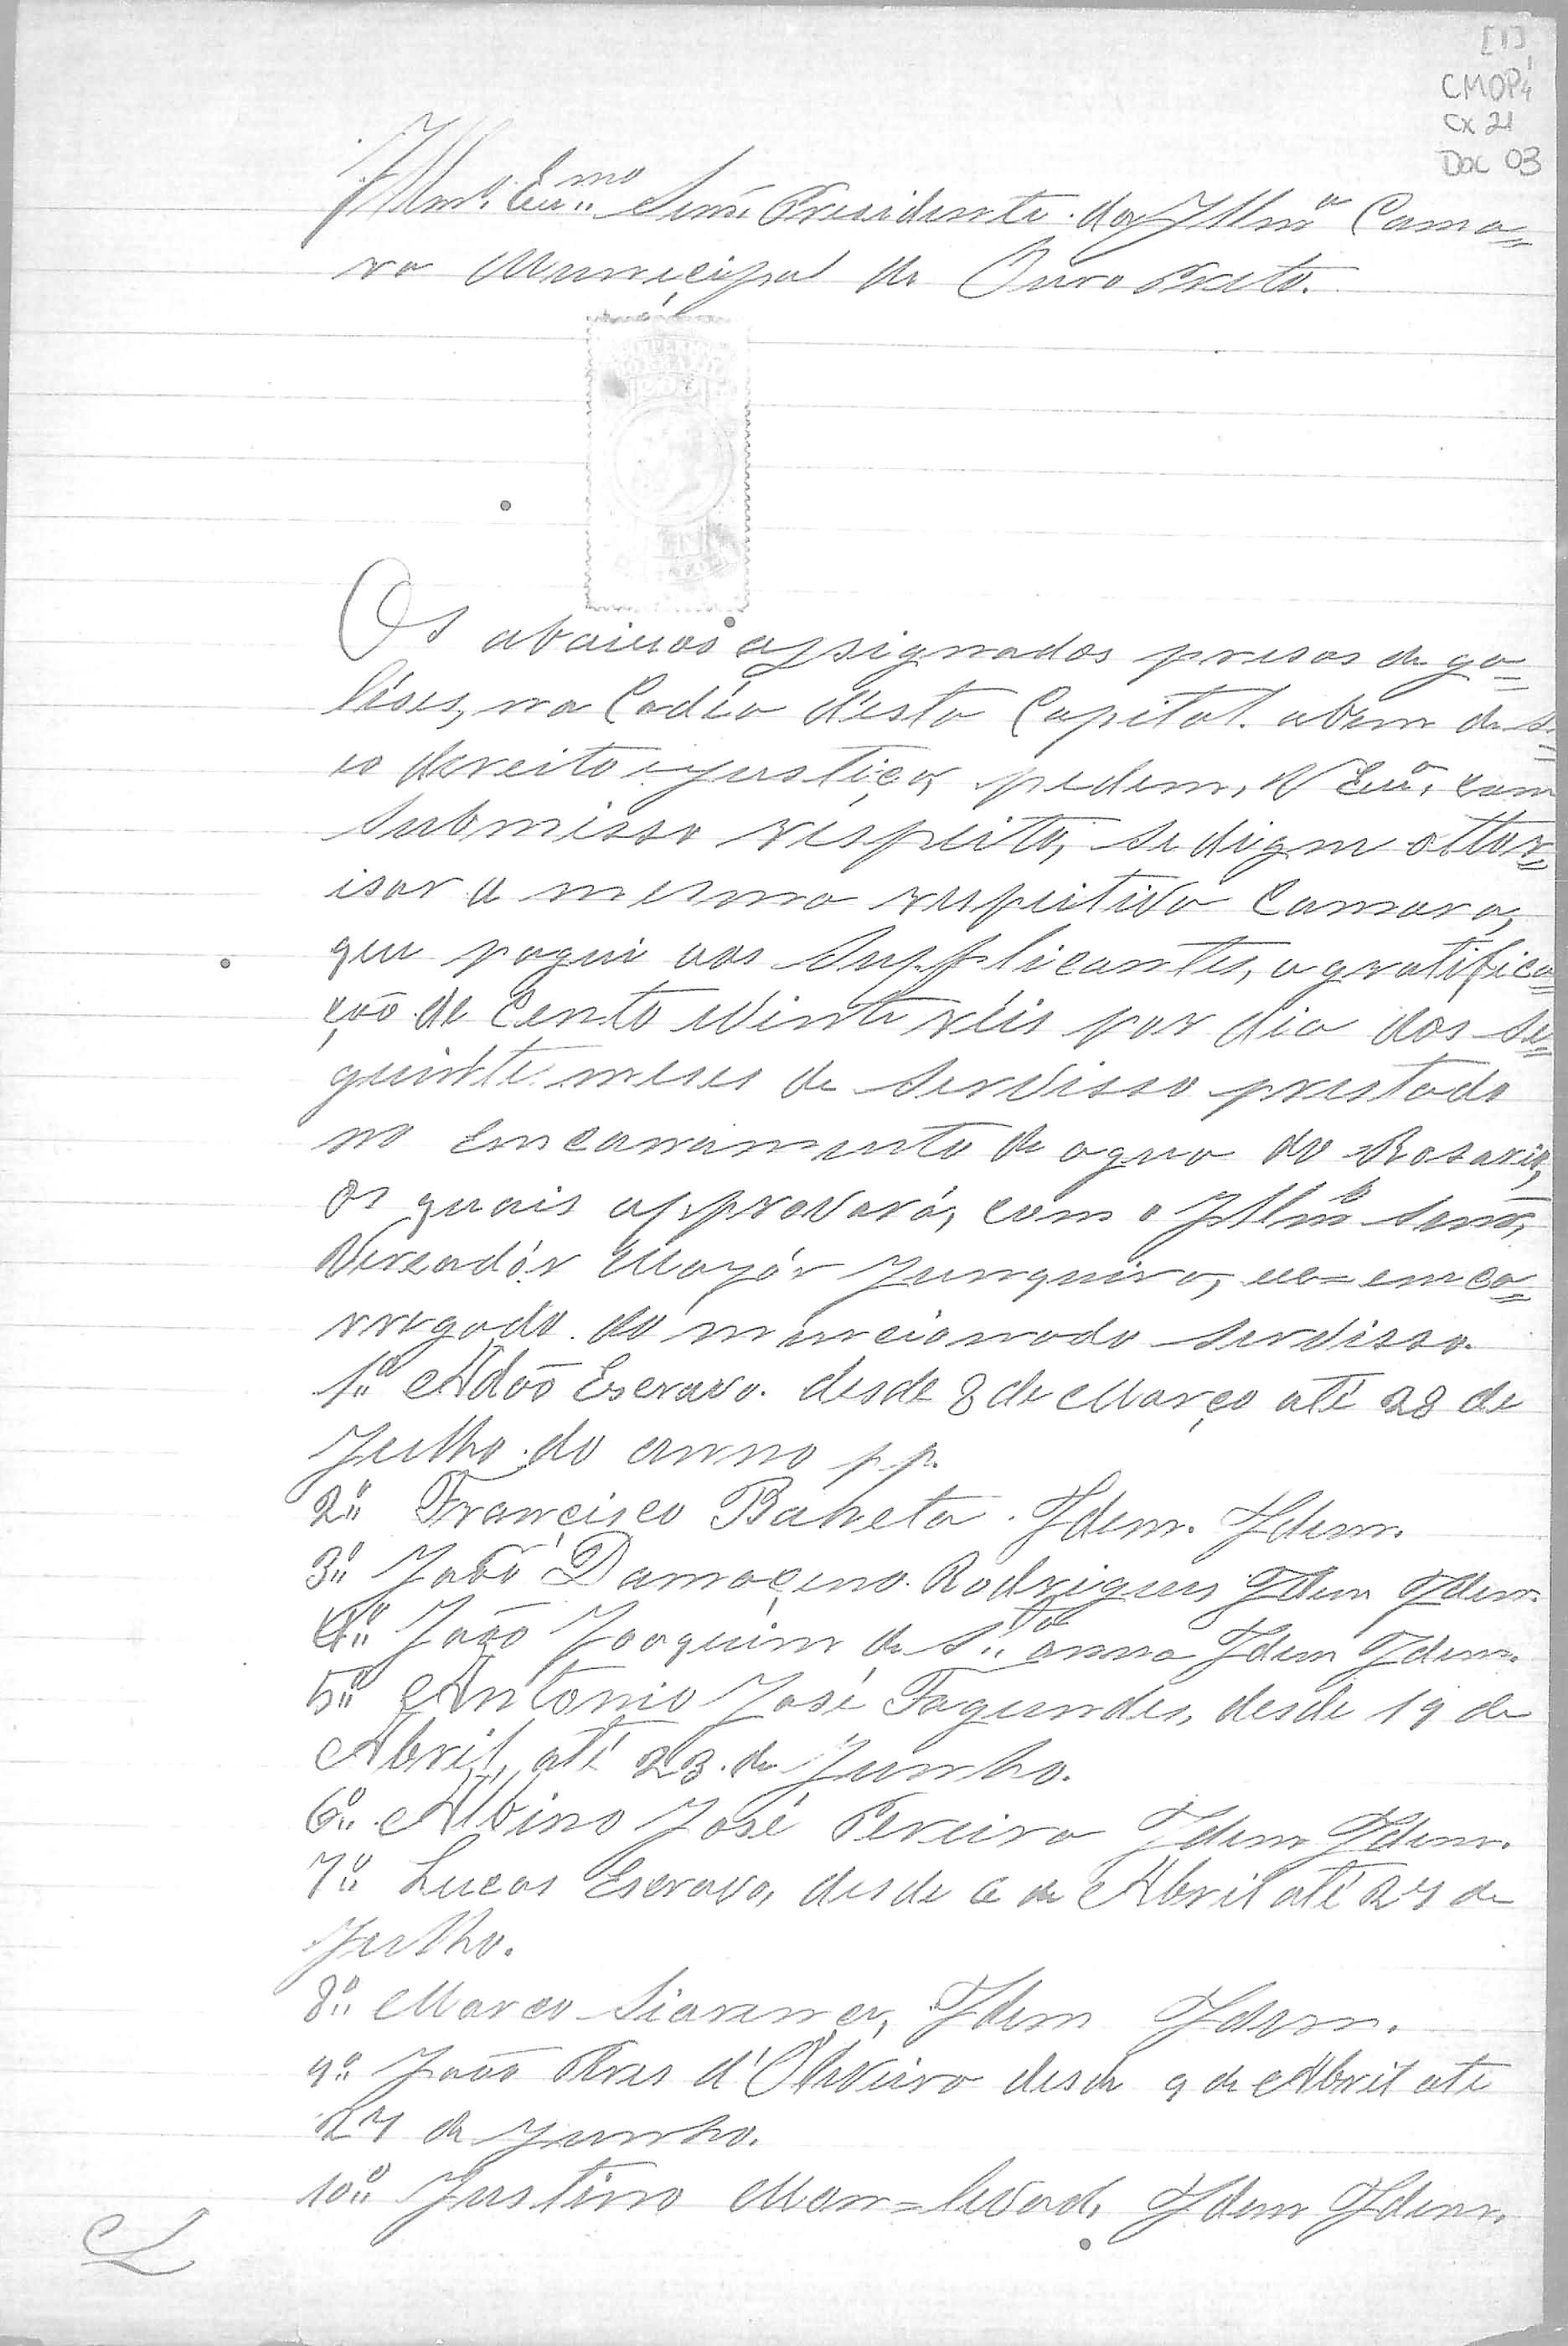 [1]
CMOP
Cx 21
Doc 03
Illmº. Exmº Senr. Presidente da Illmª Cama=
ra Municipal de Ouro Preto.
Os abaixos assignados presos de ga=
lés, na Cadêa d'esta Capital. abem de s=
eo dereito e justiça, pedem, V Exª. com
submisso respeito, se digne attor=
isar a mesma respeitiva Camara,
que pague aos Supplicantes, a gratifica=
ção de Cento Vinte réis por dia dos se=
guintte meses de Servisso prestado
no encanamento de agua do Rosario,
os quais approvará, com o Illmº Senr.
Vereadór Mayór Junqueira, enca=
rregado do mencionado servisso.
1º Adão Escravo. desde 8 de Março até 28 de
Julho do anno pp.
2º Francisco Baheta. Idem. Idem.
3º João Damaçeno Rodrigues Idem Idem.
4º João Joaquim de Stª anna Idem Idem.
5º Antonio José Fagundes, desde 19 de
Abril, até 23 de Junho.
6º Albino José Pereira Idem Idem.
7º Lucas Escravo, desde 6 de Abril até 27 de
Julho.
8º Marco Idem Idem.
9º João Pires d'Oliveira desde 9 de Abril ate
27 de Junho.
10º Justino Mon=levad. Idem Idem.